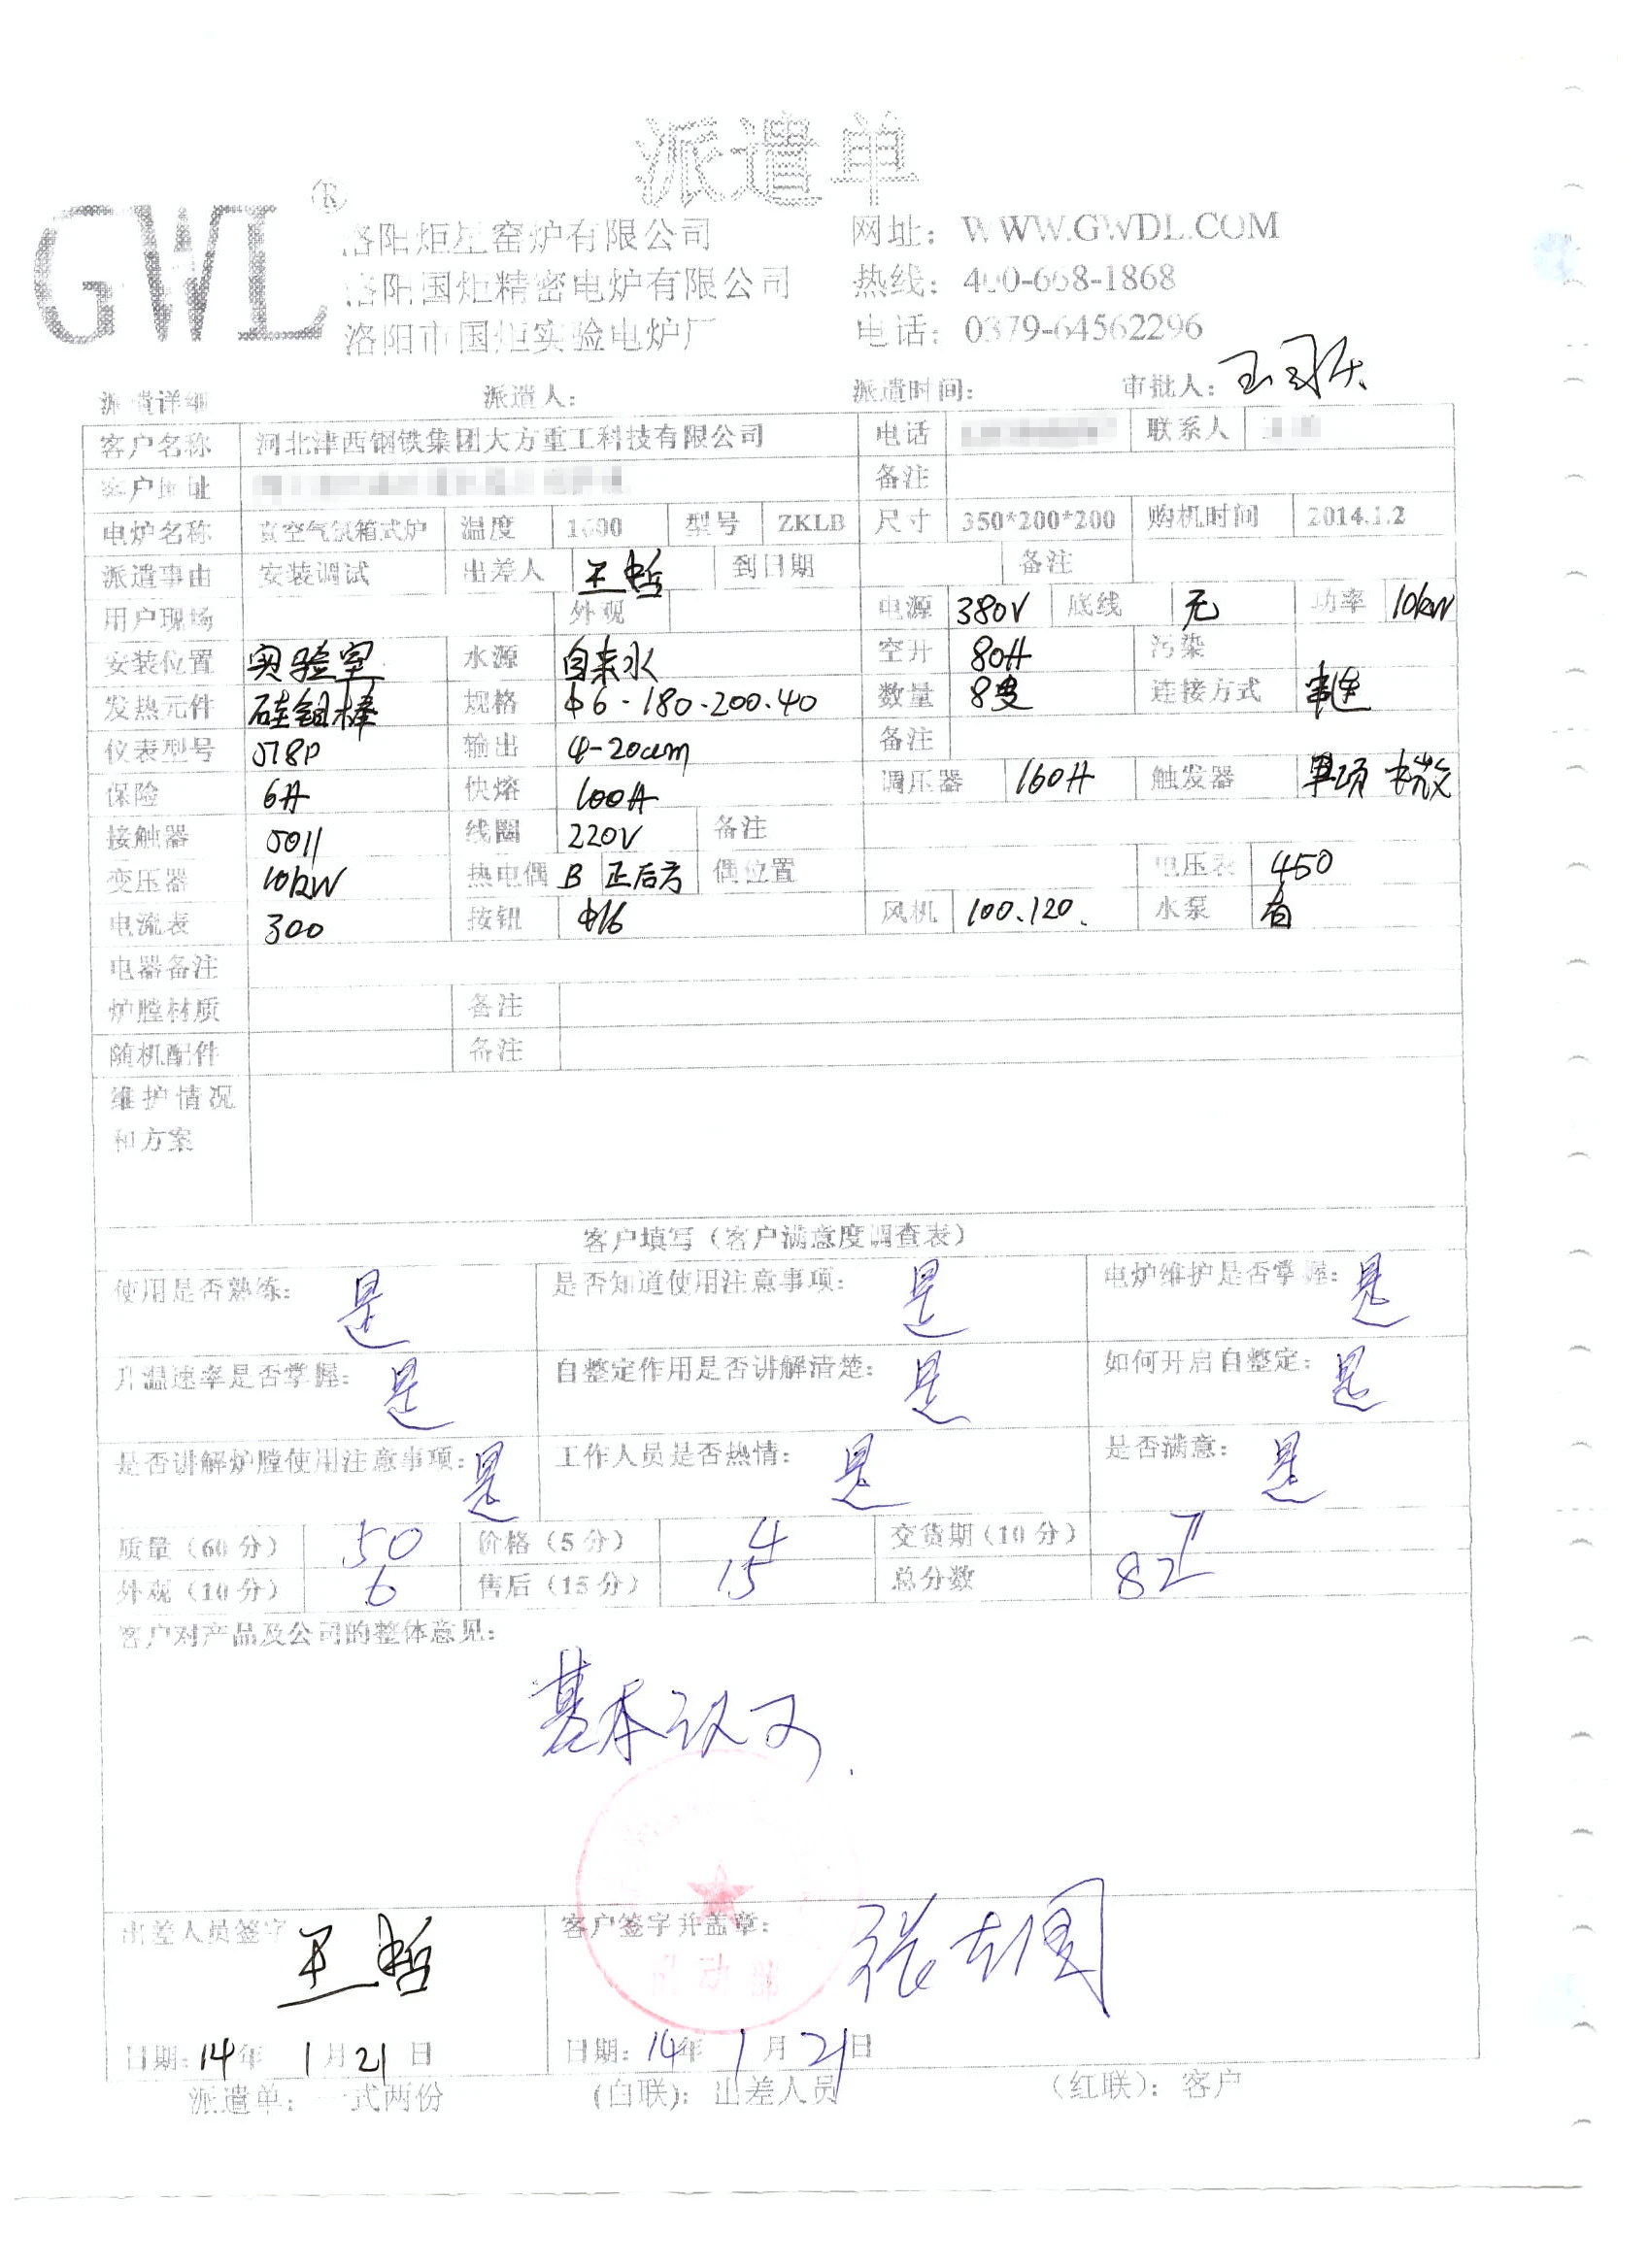 派遣单
GWL®
洛阳炬星窑炉有限公司 网址：WWW.GWDL.COM
洛阳国炬精密电炉有限公司 热线：400-668-1868
洛阳市国炬实验电炉厂 电话：0379-64562296
派遣详细 派遣人： 派遣时间： 审批人：
客户名称 河北津西钢铁集团大方重工科技有限公司 电话 联系人
客户地址 备注
电炉名称 真空气氛箱式炉 温度 1600 型号 ZKLB 尺寸 350*200*200 购机时间 2014.1.2
派遣事由 安装调试 出差人 王哲 到日期 备注
用户现场 外观 电源 380V 底线 无 功率 10kW
安装位置 实验室 水源 自来水 空开 80A 污染
发热元件 硅钼棒 规格 φ6-180.200.40 数量 8支 连接方式 串连
仪表型号 518P 输出 4-20am 备注
保险 6A 快熔 100A 调压器 160A 触发器 单项
接触器 5011 线圈 220V 备注
变压器 10kW 热电偶 B 正后方 偶位置 电压表 450
电流表 300 按钮 φ16 风机 100.120. 水泵 有
电器备注
炉膛材质 备注
随机配件 备注
维护情况
和方案
客户填写（客户满意度调查表）
使用是否熟练：是 是否知道使用注意事项：是 电炉维护是否掌握：是
升温速率是否掌握：是 自整定作用是否讲解清楚：是 如何开启自整定：是
是否讲解炉膛使用注意事项：是 工作人员是否热情：是 是否满意：是
质量（60 分） 50 价格（5 分） 4 交货期（10 分） 7
外观（10 分） 6 售后（15 分） 15 总分数 82
客户对产品及公司的整体意见：
基本认可.
出差人员签字 王哲 客户签字并盖章：
日期：14年 1月21日 日期：14年 1月21日
派遣单：一式两份 （白联）：出差人员 （红联）：客户